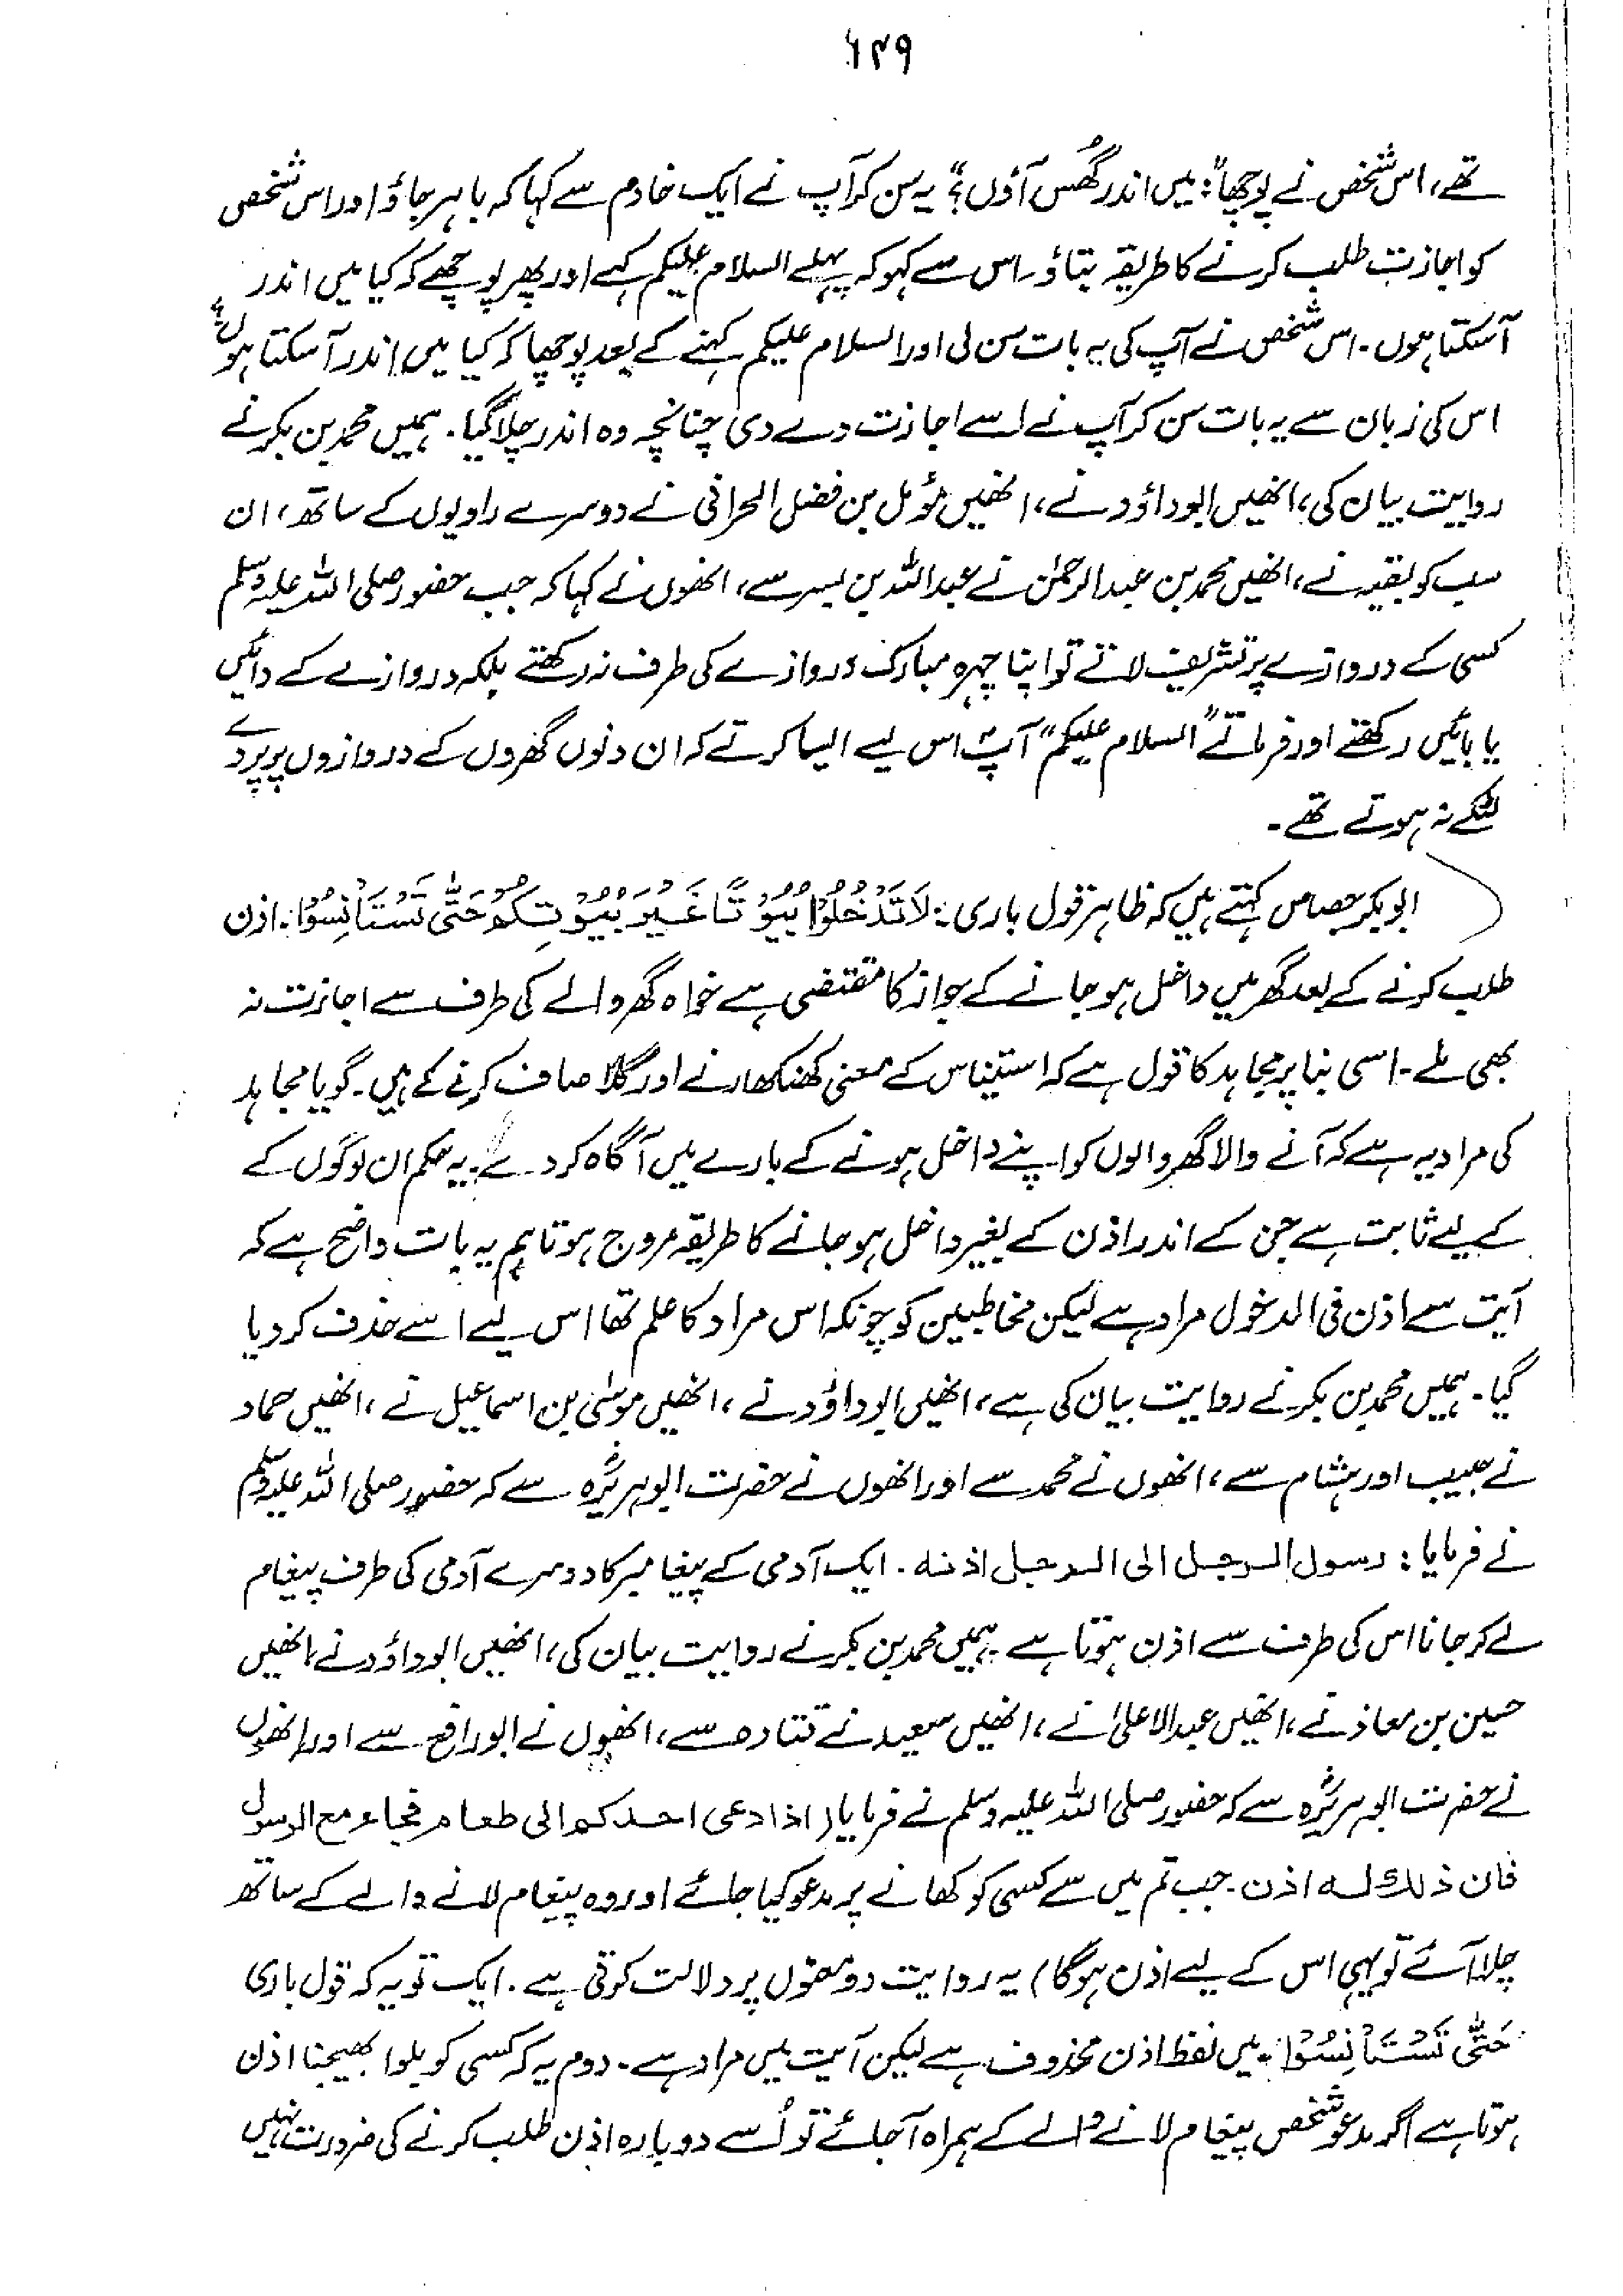 ۶۴۹
تھے، اس شخص نے پوچھا": میں اندر گھُس آؤں؟" یہ سن کر آپ نے ایک خادم سے کہا کہ باہر جاؤ اور اس شخص
کو اجازت طلب کرنے کا طریقہ بتاؤ۔ اس سے کہو کہ پہلے السلام علیکم کہے اور پھر پوچھے کہ کیا میں اندر
آسکتا ہوں۔ اس شخص نے آپ کی یہ بات سن لی اور السلام علیکم کہنے کے بعد پوچھا کہ کیا میں اندر آسکتا ہوں؟
اس کی زبان سے یہ بات سن کر آپ نے اسے اجازت دے دی چنانچہ وہ اندر چلا گیا۔ ہمیں محمد بن بکر نے
روایت بیان کی، انھیں ابوداؤد نے، انھیں مؤمل بن فضل الحرانی نے دوسرے راویوں کے ساتھ، ان
سب کو بقیہ نے، انھیں محمد بن عبدالرحمٰن نے عبداللہ بن بسر سے، انھوں نے کہا کہ جب حضور صلی اللہ علیہ وسلم
کسی کے دروازے پر تشریف لاتے تو اپنا چہرہ مبارک دروازے کی طرف نہ رکھتے بلکہ دروازے کے دائیں
یا بائیں رکھتے اور فرماتے "السلام علیکم" آپؐ اس لیے ایسا کرتے کہ ان دنوں گھروں کے دروازوں پر پردے
لٹکے نہ ہوتے تھے۔
ابوبکر جصاص کہتے ہیں کہ ظاہر قول باری: لَا تَدْخُلُوْا بُیُوْتًا غَیْرَ بُیُوْتِکُمْ حَتّٰی تَسْتَاْنِسُوْا۔ اذن
طلب کرنے کے بعد گھر میں داخل ہوجانے کے جواز کا مقتضی ہے خواہ گھر والے کی طرف سے اجازت نہ
بھی ملے۔ اسی بنا پر مجاہد کا قول ہے کہ استیناس کے معنی کھنکھارنے اور گلا صاف کرنے کے ہیں۔ گویا مجاہد
کی مراد یہ ہے کہ آنے والا گھر والوں کو اپنے داخل ہونے کے بارے میں آگاہ کردے۔ یہ حکم ان لوگوں کے
کے لیے ثابت ہے جن کے اندر اذن کے بغیر داخل ہوجانے کا طریقہ مروج ہو تاہم یہ بات واضح ہے کہ
آیت سے اذن فی الدخول مراد ہے لیکن مخاطبین کو چونکہ اس مراد کا علم تھا اس لیے اسے حذف کردیا
گیا۔ ہمیں محمد بن بکر نے روایت بیان کی ہے، انھیں ابوداؤد نے، انھیں موسیٰ بن اسماعیل نے، انھیں حماد
نے حبیب اور ہشام سے، انھوں نے محمد سے اور انھوں نے حضرت ابوہریرہؓ سے کہ حضور صلی اللہ علیہ وسلم
نے فرمایا: رسول الرجل الی الرجل اذنہ۔ ایک آدمی کے پیغامبر کا دوسرے آدمی کی طرف پیغام
لے کر جانا اس کی طرف سے اذن ہوتا ہے۔ ہمیں محمد بن بکر نے روایت بیان کی، انھیں ابوداؤد نے، انھیں
حسین بن معاذ نے، انھیں عبدالاعلیٰ نے، انھیں سعید نے قتادہ سے، انھوں نے ابورافع سے اور انھوں
نے حضرت ابوہریرہؓ سے کہ حضور صلی اللہ علیہ وسلم نے فرمایا (اذا دعی احدکم الی طعام فجاء مع الرسول
فان ذلک لہ اذن۔ جب تم میں سے کسی کو کھانے پر مدعو کیا جائے اور وہ پیغام لانے والے کے ساتھ
چلا آئے تو یہی اس کے لیے اذن ہوگا) یہ روایت دو معنوں پر دلالت کرتی ہے۔ ایک تو یہ کہ قول باری
حَتّٰی تَسْتَاْنِسُوْا۔ میں لفظ اذن محذوف ہے لیکن آیت میں مراد ہے۔ دوم یہ کہ کسی کو بلوا بھیجنا اذن
ہوتا ہے اگر مدعو شخص پیغام لانے والے کے ہمراہ آجائے تو اُسے دوبارہ اذن طلب کرنے کی ضرورت نہیں